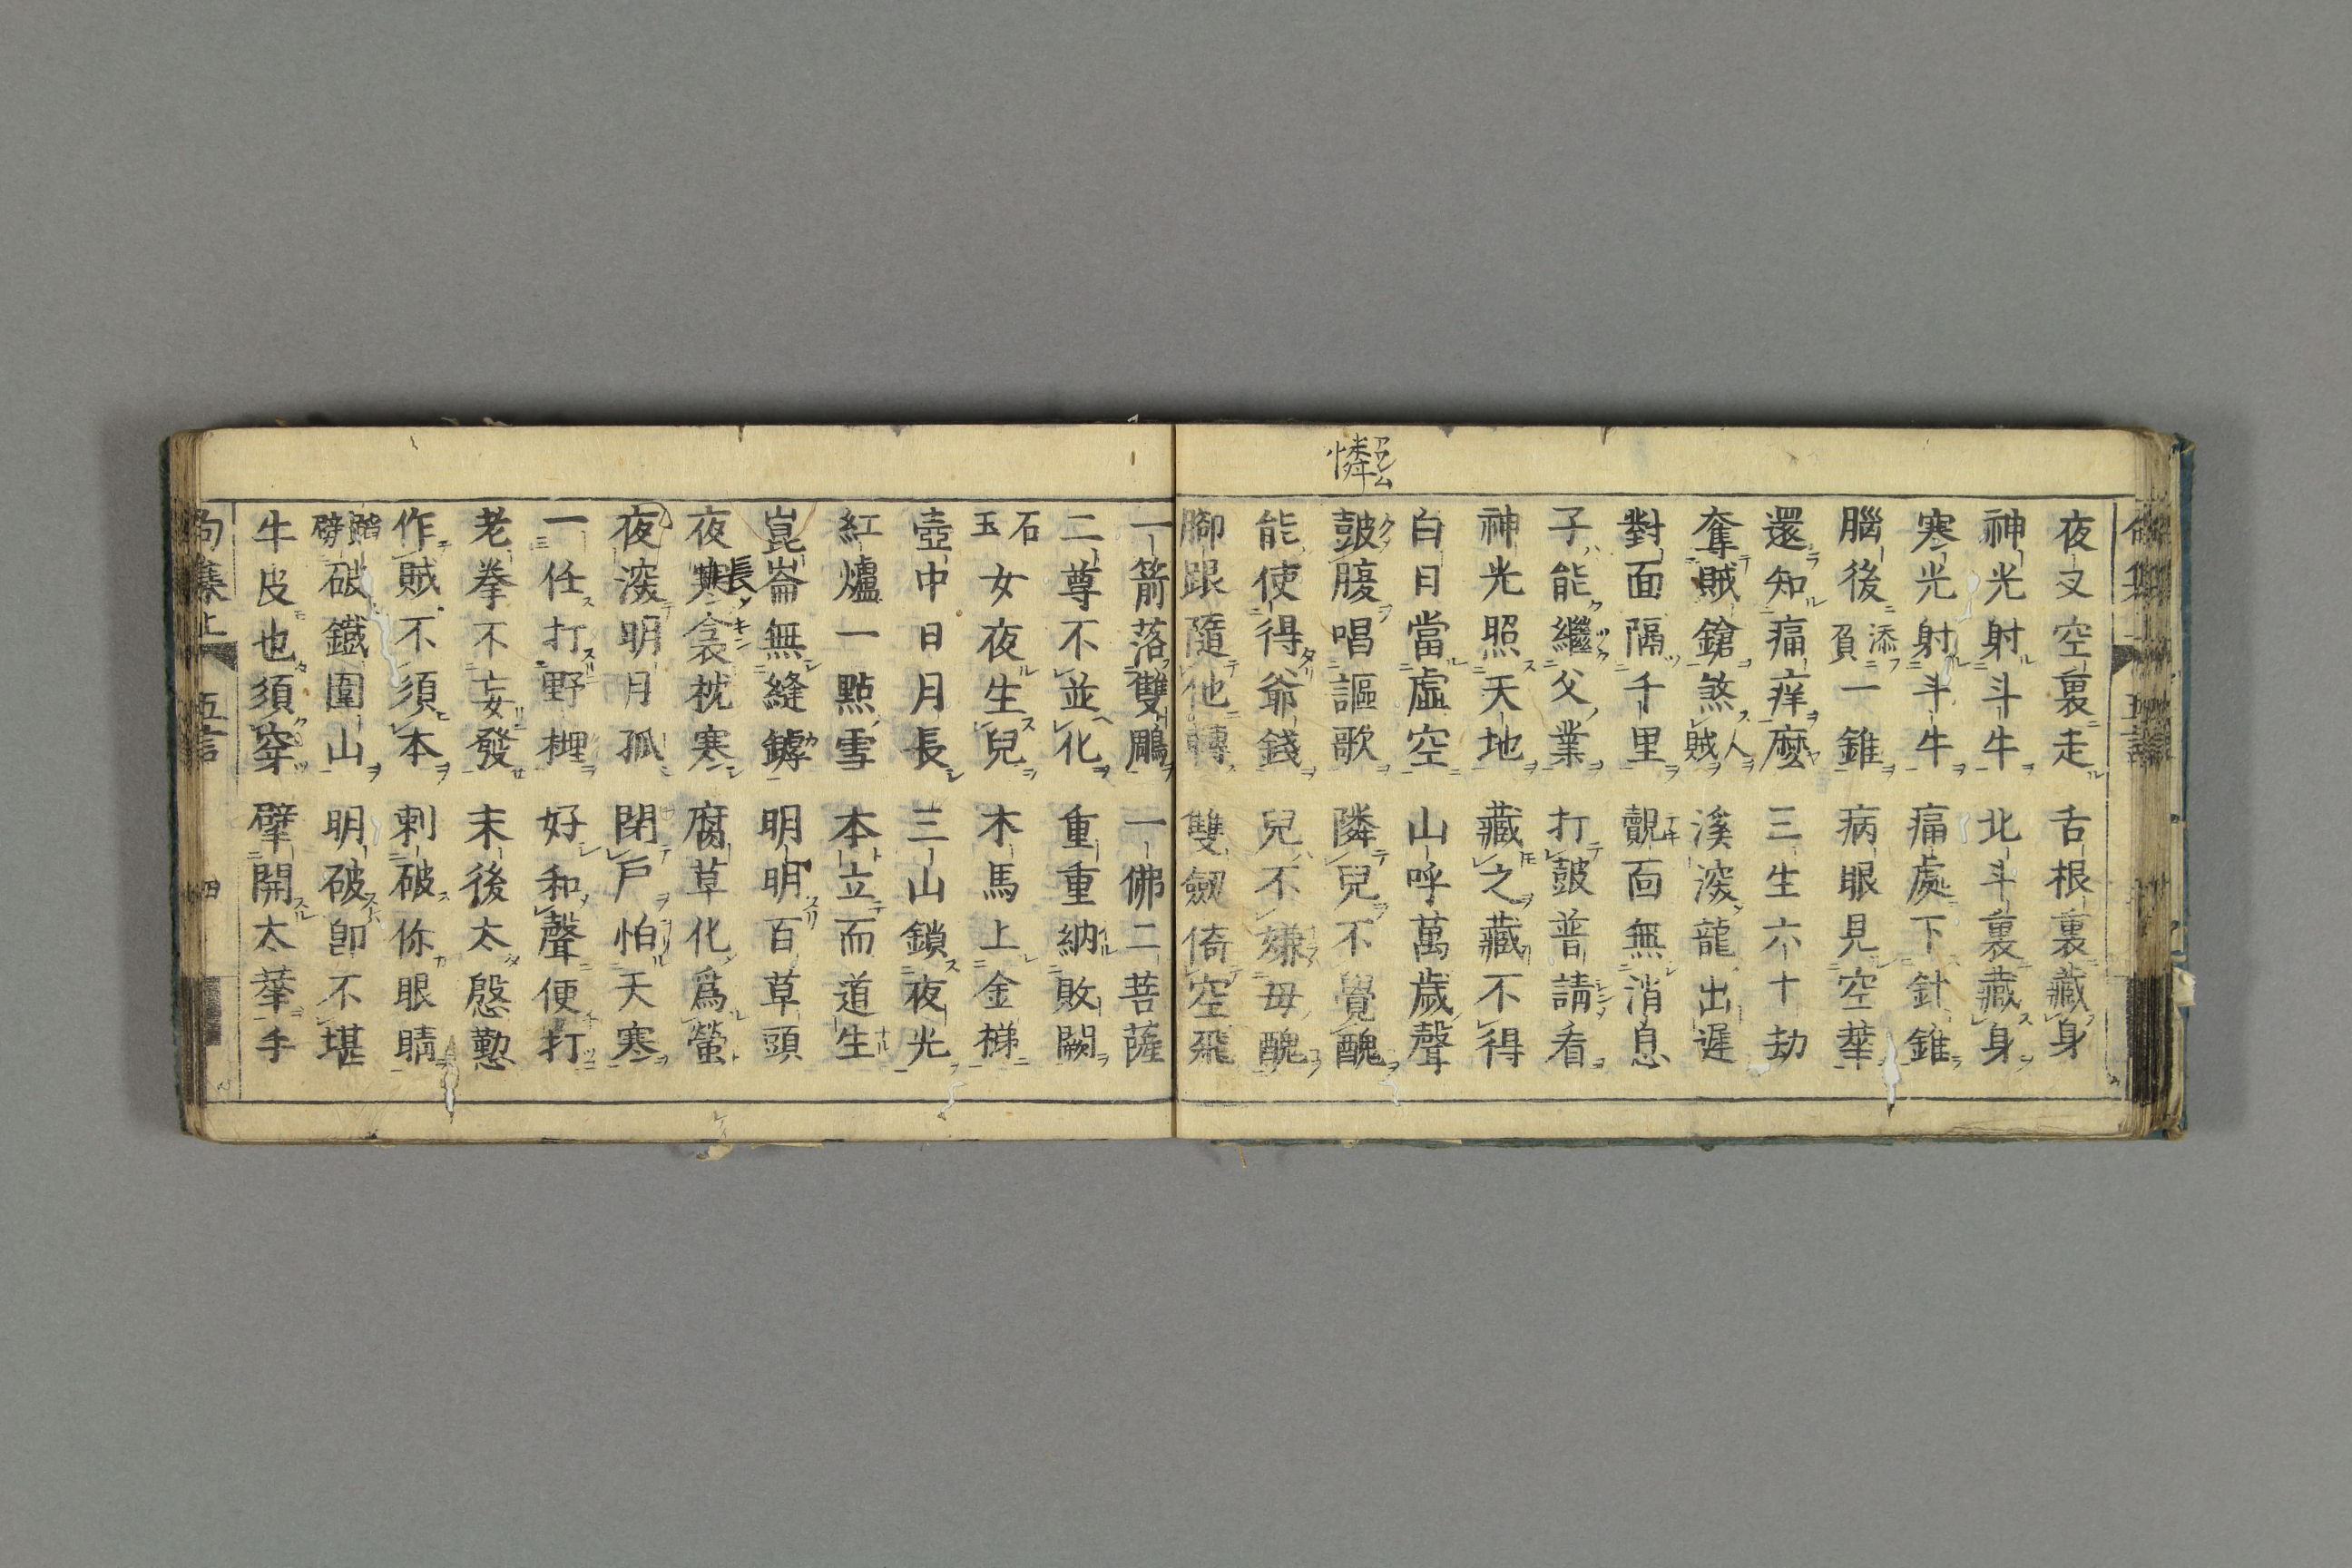 憐
夜叉空裏走 舌根裏藏身
神光射斗牛 北斗裏藏身
寒光射斗牛 痛處下針錐
腦後添一錐 病眼見空華
還知痛痒麼 三生六十劫
奪賊鎗煞賊 溪深龍出遲
對面隔千里 覿面無消息
子能繼父業 打皷普請看
神光照天地 藏之藏不得
白日當虛空 山呼萬歲聲
皷腹唱謳歌 憐兒不覺醜
能使得爺錢 兒不嫌母醜
脚跟隨他轉 雙劔倚空飛
一箭落雙鵰 一佛二菩薩
二尊不並化 重重納敗闕
石玉女夜生兒 木馬上金梯
壺中日月長 三山鎖夜光
紅爐一點雪 本立而道生
崑崙無縫鏬 明明百草頭
夜寒長衾枕寒 腐草化爲螢
夜深明月孤 閉戶怕天寒
一任打野榸 好和聲便打
老拳不妄發 末後太慇懃
作賊不須本 刺破你眼睛
劈破鐵圍山 明破卽不堪
牛皮也須穿 擘開太華手
句集上 五言 四